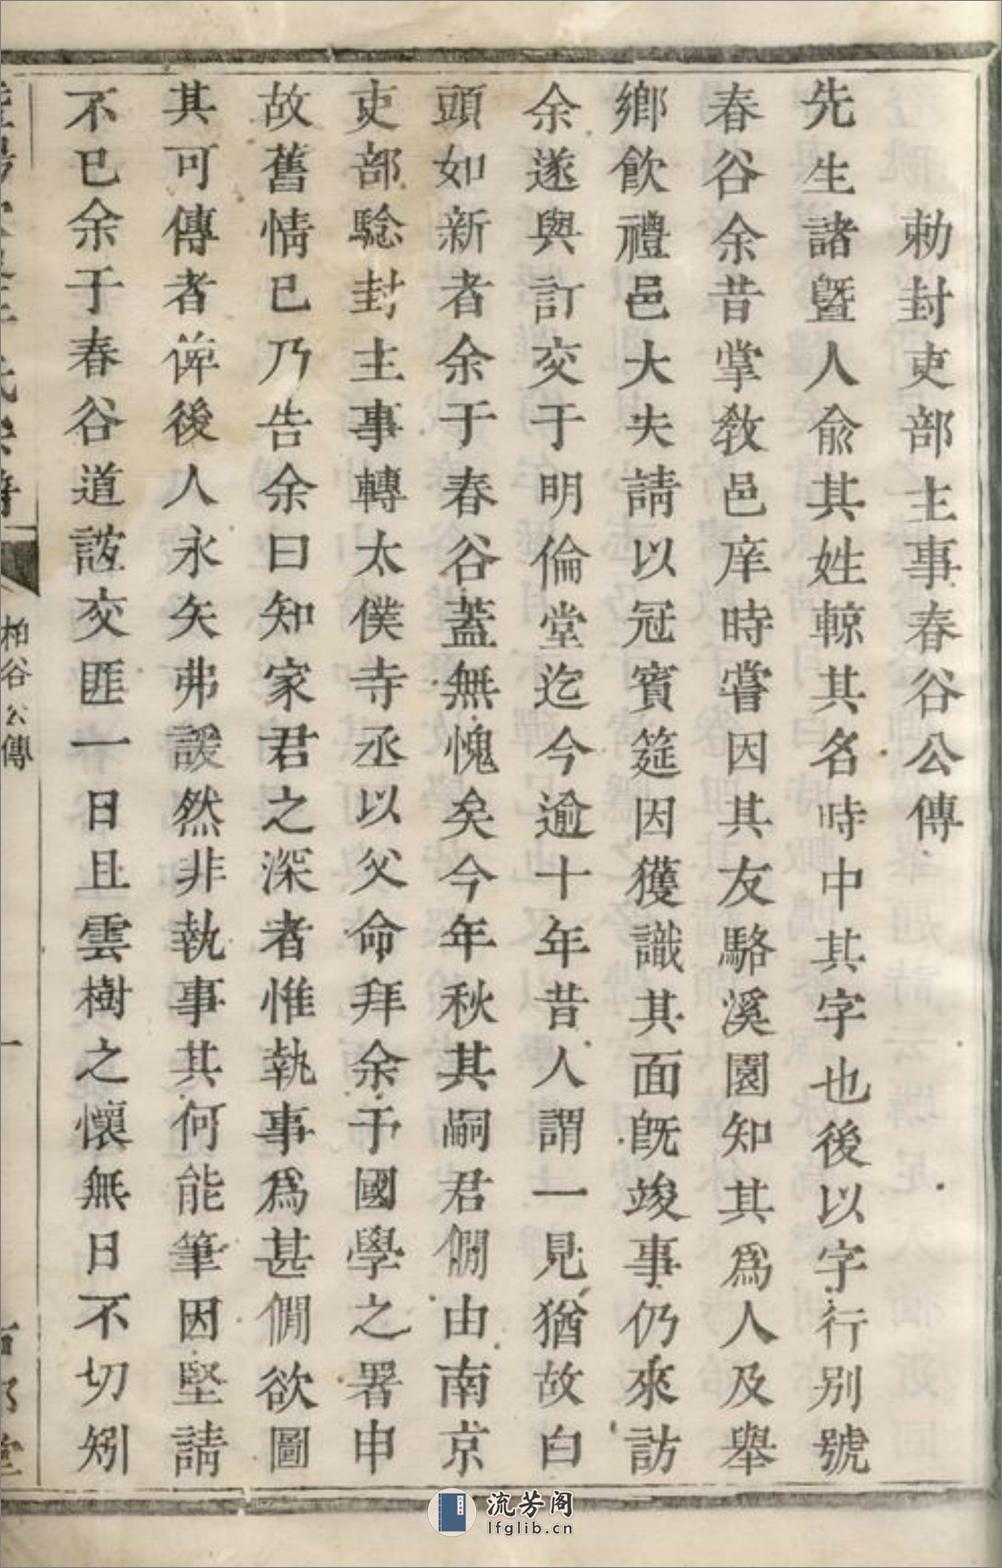 勅封吏部主事春谷公傳
先生諸暨人俞其姓輬其名時中其字也後以字行别號
春谷余昔掌教邑庠時嘗因其友駱溪園知其爲人及舉
鄉飲禮邑大夫請以冠賓筵因獲識其面旣竣事仍來訪
余遂與訂交于明倫堂迄今逾十年昔人謂一見猶故白
頭如新者余于春谷蓋無愧矣今年秋其嗣君僩由南京
吏部騐封主事轉太僕寺丞以父命拜余于國學之署申
故舊情已乃告余曰知家君之深者惟執事爲甚僩欲圖
其可傳者俾後人永矢弗諼然非執事其何能筆因堅請
不已余于春谷道誼交匪一日且雲樹之懷無日不切矧
柏谷公傳
一
流芳阁
lfglib.cn